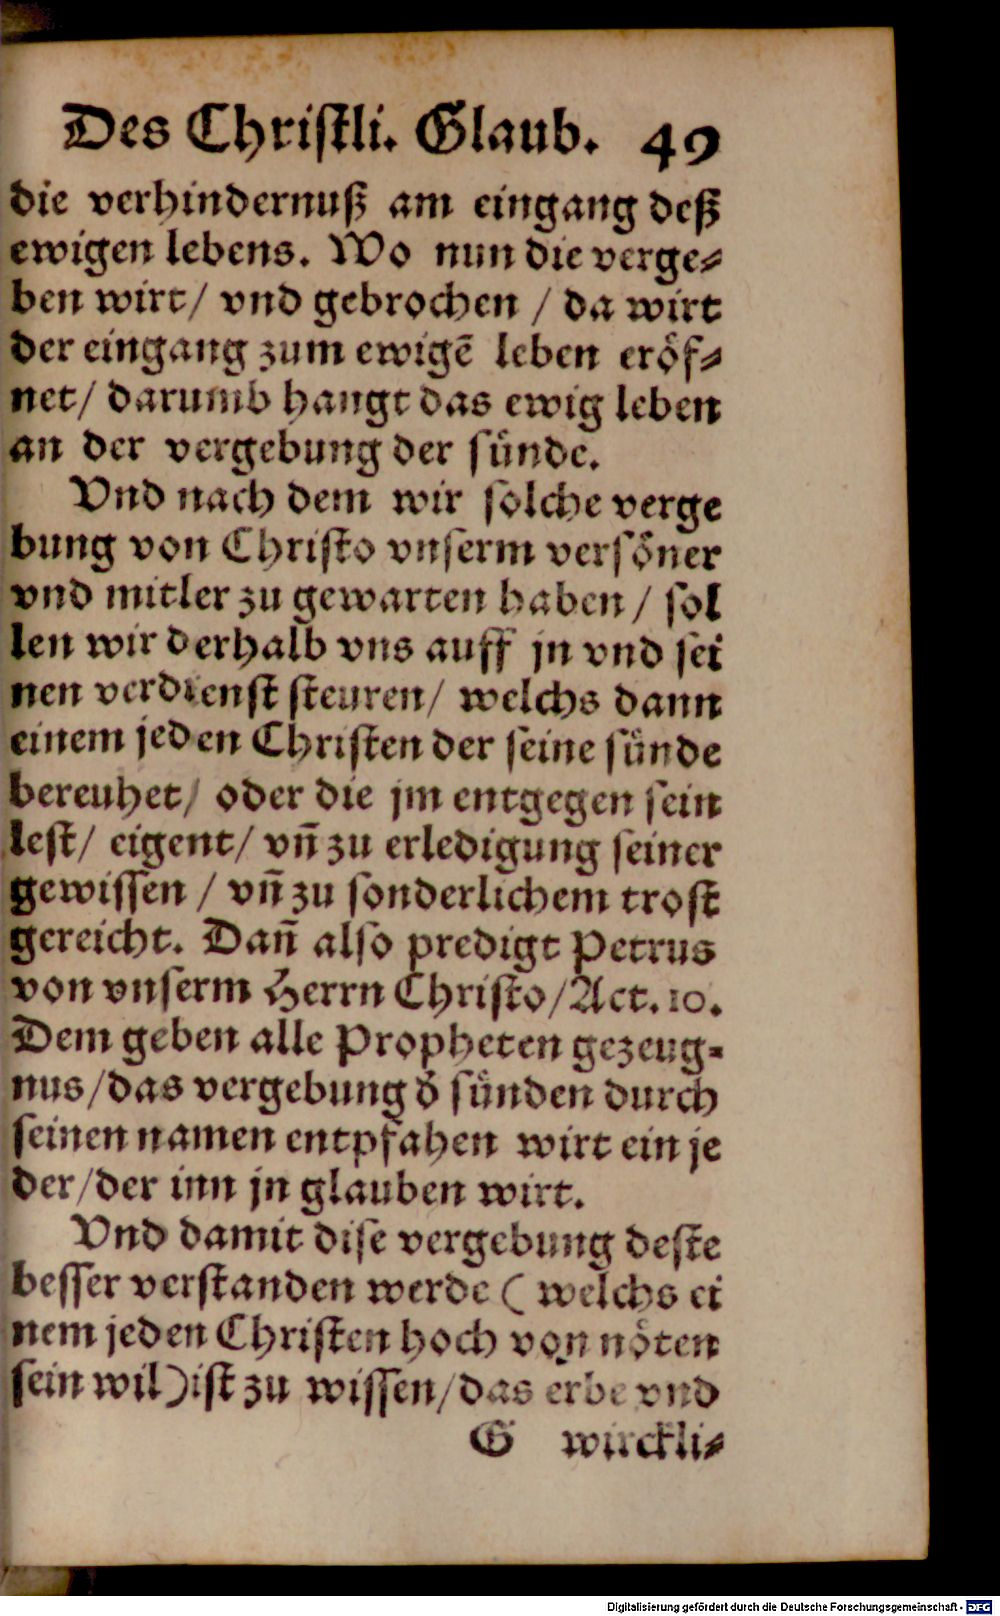 Des Christli. Glaub. 49
die verhindernuß am eingang deß
ewigen lebens. Wo nun die verge⸗
ben wirt/ vnd gebrochen / da wirt
der eingang zum ewigẽ leben eröf⸗
net/ darumb hangt das ewig leben
an der vergebung der sünde.
Vnd nach dem wir solche verge
bung von Christo vnserm versöner
vnd mitler zu gewarten haben / sol
len wir derhalb vns auff jn vnd sei
nen verdienst steuren/ welchs dann
einem jeden Christen der seine sünde
bereuhet/ oder die jm entgegen sein
lest/ eigent/ vñ zu erledigung seiner
gewissen / vñ zu sonderlichem trost
gereicht. Dañ also predigt Petrus
von vnserm Herrn Christo/Act.10.
Dem geben alle Propheten gezeug⸗
nus/das vergebung ð sünden durch
seinen namen entpfahen wirt ein je
der/der inn jn glauben wirt.
Vnd damit dise vergebung deste
besser verstanden werde ( welchs ei
nem jeden Christen hoch von nöten
sein wil)ist zu wissen/das erbe vnd
G wirckli⸗
Digitalisierung gefördert durch die Deutsche Forschungsgemeinschaft - DFG